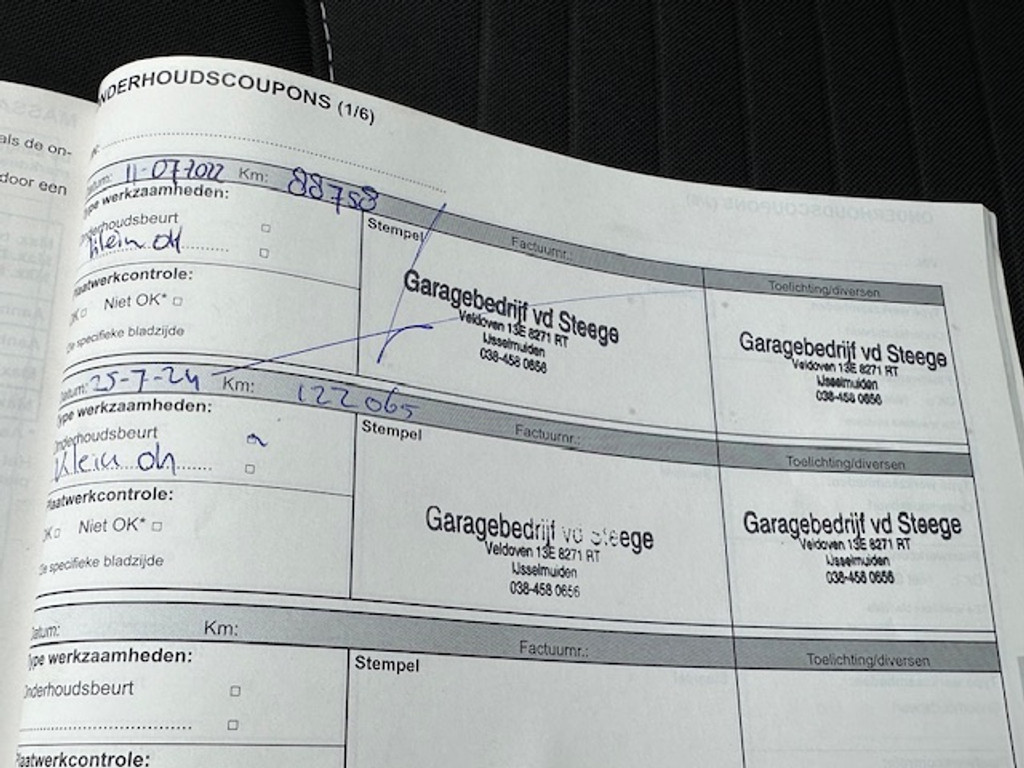 als de on-
door een
NDERHOUDSCOUPONS (1/6)
Datum: 11-07-2022 Km: 88758
Type werkzaamheden:
Onderhoudsbeurt
Klein OH
Plaatwerkcontrole:
OK Niet OK*
Zie specifieke bladzijde
Stempel Factuurnr.:
Garagebedrijf vd Steege
Veldoven 13E 8271 RT
IJsselmuiden
038-458 0656
Toelichting/diversen
Garagebedrijf vd Steege
Veldoven 13E 8271 RT
IJsselmuiden
038-458 0656
Datum: 25-7-24 Km: 122065
Type werkzaamheden:
Onderhoudsbeurt
Klein OH
Plaatwerkcontrole:
OK Niet OK*
Zie specifieke bladzijde
Stempel Factuurnr.:
Garagebedrijf vd Steege
Veldoven 13E 8271 RT
IJsselmuiden
038-458 0656
Toelichting/diversen
Garagebedrijf vd Steege
Veldoven 13E 8271 RT
IJsselmuiden
038-458 0656
Datum: Km:
Type werkzaamheden:
Onderhoudsbeurt
Plaatwerkcontrole:
Stempel Factuurnr.:
Toelichting/diversen